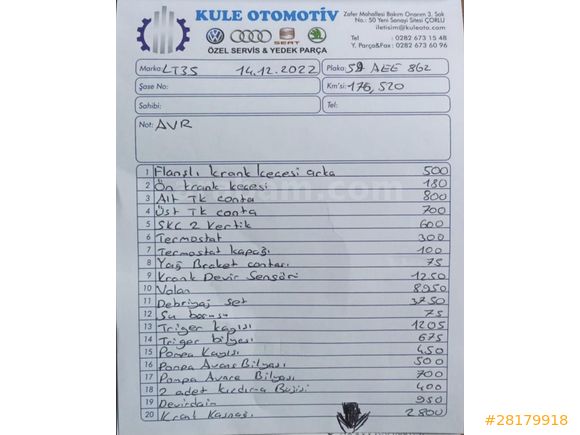 KULE OTOMOTİV
ÖZEL SERVİS & YEDEK PARÇA
Zafer Mahallesi Bakım Onarım 3. Sok
No.: 50 Yeni Sanayi Sitesi ÇORLU
iletisim@kuleoto.com
Tel : 0282 673 15 48
Y. Parça&Fax : 0282 673 60 96
Marka: LT35 14.12.2022 Plaka: 59 AEE 862
Şase No: Km'si: 176,520
Sahibi: Tel:
Not: AVR
1 Flanşlı krank kecesi arka 500
2 Ön krank kecesi 180
3 Alt Tk conta 800
4 Üst Tk conta 700
5 SKC 2 Kertik 600
6 Termostat 300
7 Termostat kapağı 100
8 Yağ Braket contası 75
9 Krank Devir Sensörü 1250
10 Volan 8950
11 Debriyaj set 3750
12 Su borusu 75
13 Triger kayışı 1205
14 Triger bilyesi 675
15 Pompa Kayışı 450
16 Pompa Avare Bilyası 500
17 Pompa Avare Bilyası 700
18 2 adet kızdırma Bujisi 400
19 Devirdaim 950
20 Krank Kasnağı 2800
#28179918